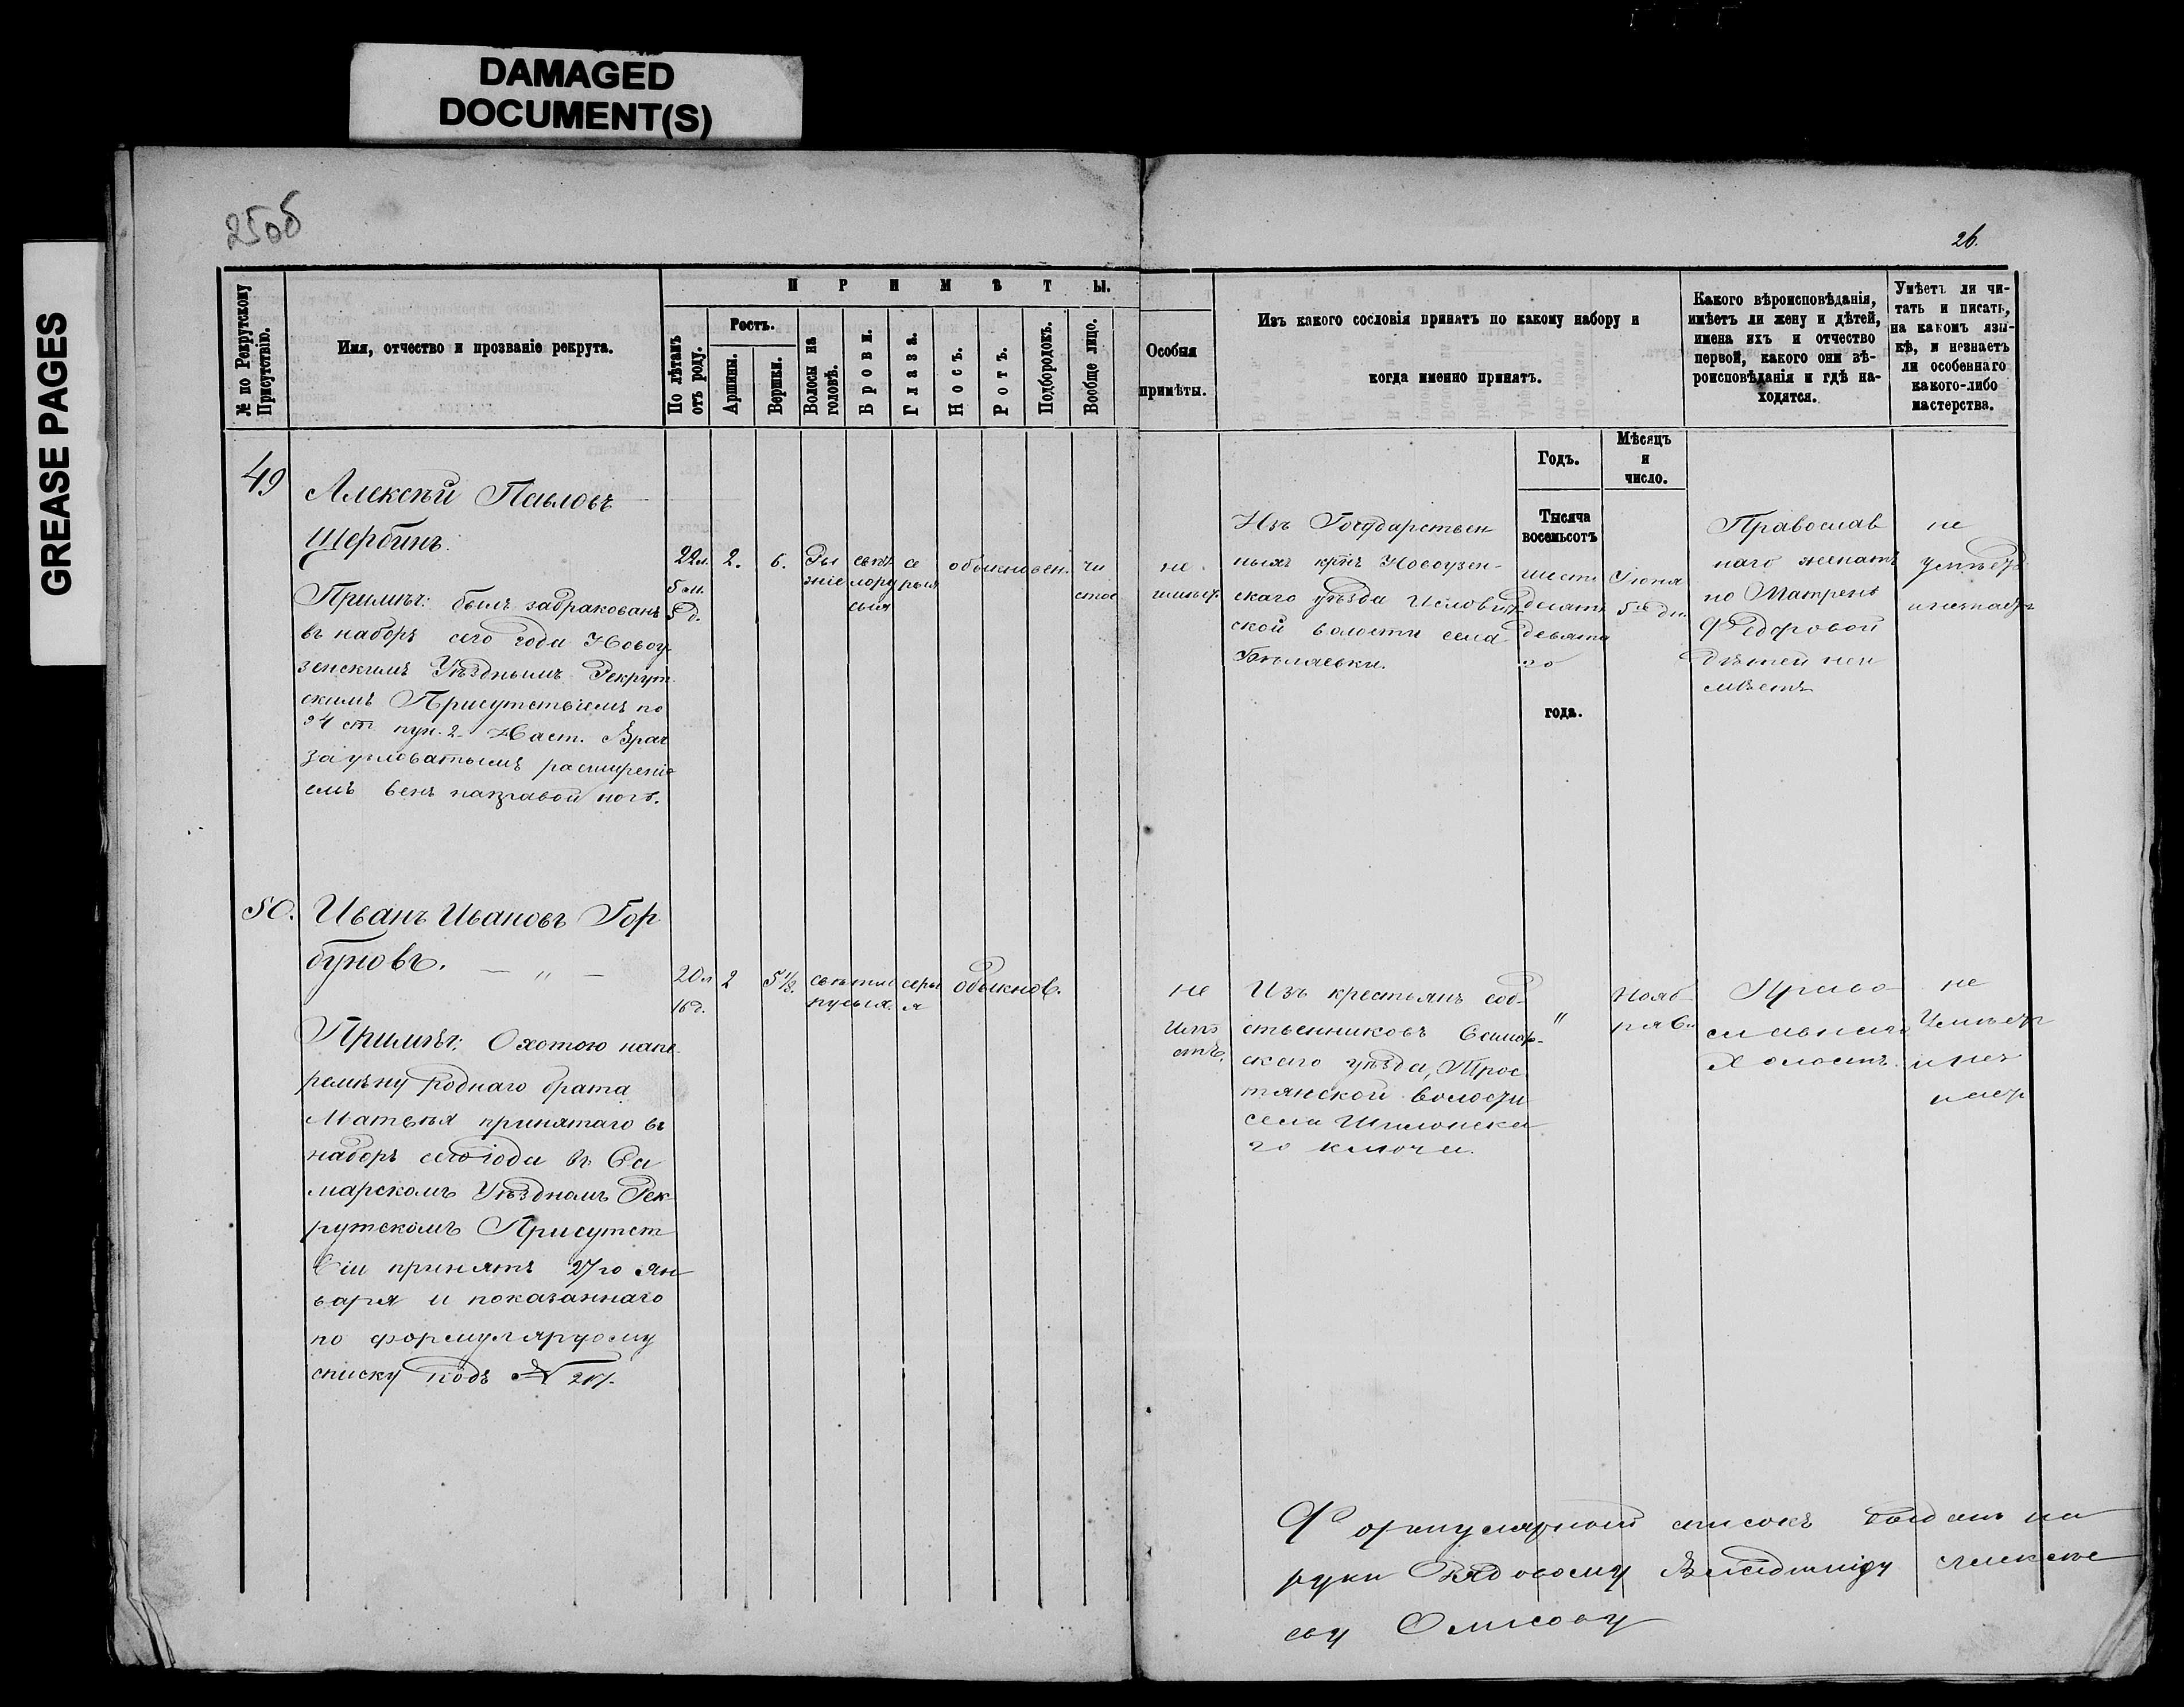 DAMAGED
DOCUMENT(S)
GREASE PAGES
25об
26.
№ по Рекрутскому
Присутствію.
Имя, отчество и прозваніе рекрута.
ПРИМѢТЫ.
По лѣтамъ
отъ роду.
Ростъ.
Аршины.
Вершки.
Волосы на
головѣ.
Брови.
Глаза.
Носъ.
Ротъ.
Подбородокъ.
Вообще лицо.
Особыя
примѣты.
Изъ какого сословія принятъ по какому набору и
когда именно принятъ.
Какого вѣроисповѣданія,
имѣетъ ли жену и дѣтей,
имена ихъ и отчество
первой, какого они вѣ-
роисповѣданія и гдѣ на-
ходятся.
Умѣетъ ли чи-
тать и писать,
на какомъ язы-
кѣ, и незнаетъ
ли особеннаго
какого-либо
мастерства.
Годъ.
Мѣсяцъ
и
число.
Тысяча
восемьсотъ
49
Алексѣй Павловъ
Щербинъ.
Примѣч: былъ забракованъ
въ наборъ сего года Новоу
зенскимъ Уѣзднымъ Рекрут
скимъ Присутствіемъ по
94 ст. пун. 2 Наст. Врач
за узловатымъ расширені
емъ венъ на правой ногѣ.
22 л.
5 м.
5 д.
2.
6.
Ры
жіе
свѣт
лору
сыя
се
рыя
обыкновен.
чи
стое
не
имѣет
Изъ Государствен
ныхъ крнъ Новоузен-
скаго уѣзда
ской волости села
Бѣляевки.
шесть
десятъ
девята
го
года.
Іюня
5го дн.
Православ
наго женатъ
на Матренѣ
Федоровой
дѣтей неи
мѣетъ
не
умѣетъ
50.
Иванъ Ивановъ Гор
буновъ. — " —
Примѣч: Охотою напе
ремѣну роднаго брата
Матвѣя принятаго въ
наборъ сего года въ Са
марскомъ Уѣздномъ Рек
рутскомъ Присутст
віи принятъ 27го Ян
варя и показаннаго
по формулярному
списку подъ №
20 л
16 д.
2
5 1/2.
свѣтло
русыя.
серы
я
обыкнов.
не
имѣ
етъ.
Изъ крестьянъ соб-
ственниковъ Самар-
скаго уѣзда, Трос
тянской волости
села Шиланска
го ключа.
"
Нояб
ря 6
Право
славнаго
Холостъ.
не
Умѣетъ
Формулярный списокъ выданъ на
руки Рядовому Алексѣе
ву